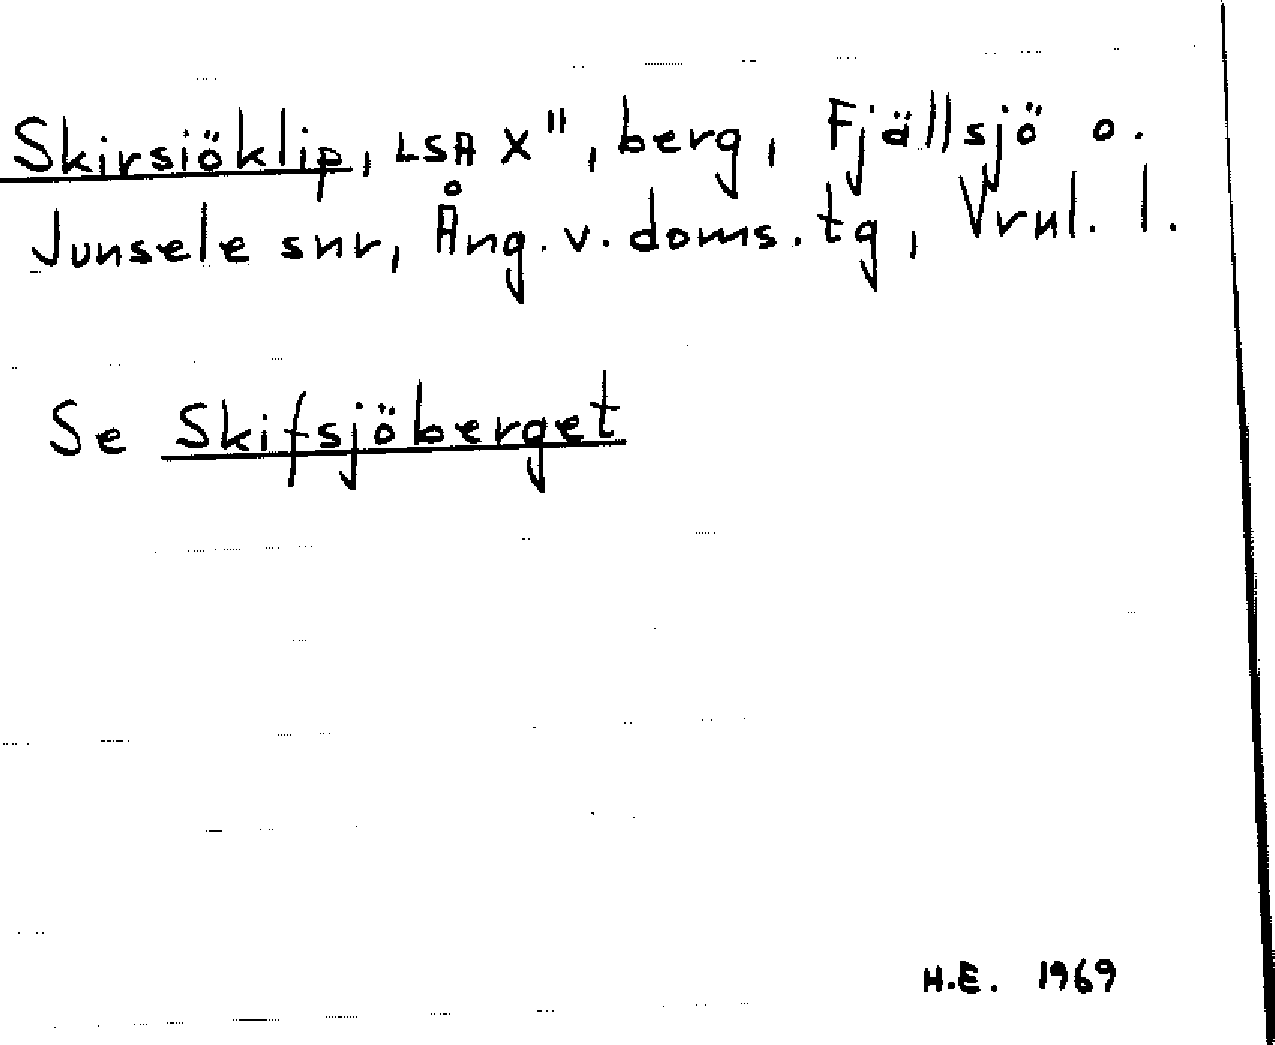 Skirsiöklip, LSA X", berg, Fjällsjö o.
Junsele snr, Ång. v. doms. tg, Vrnl. l.
Se Skifsjöberget
H.E. 1969